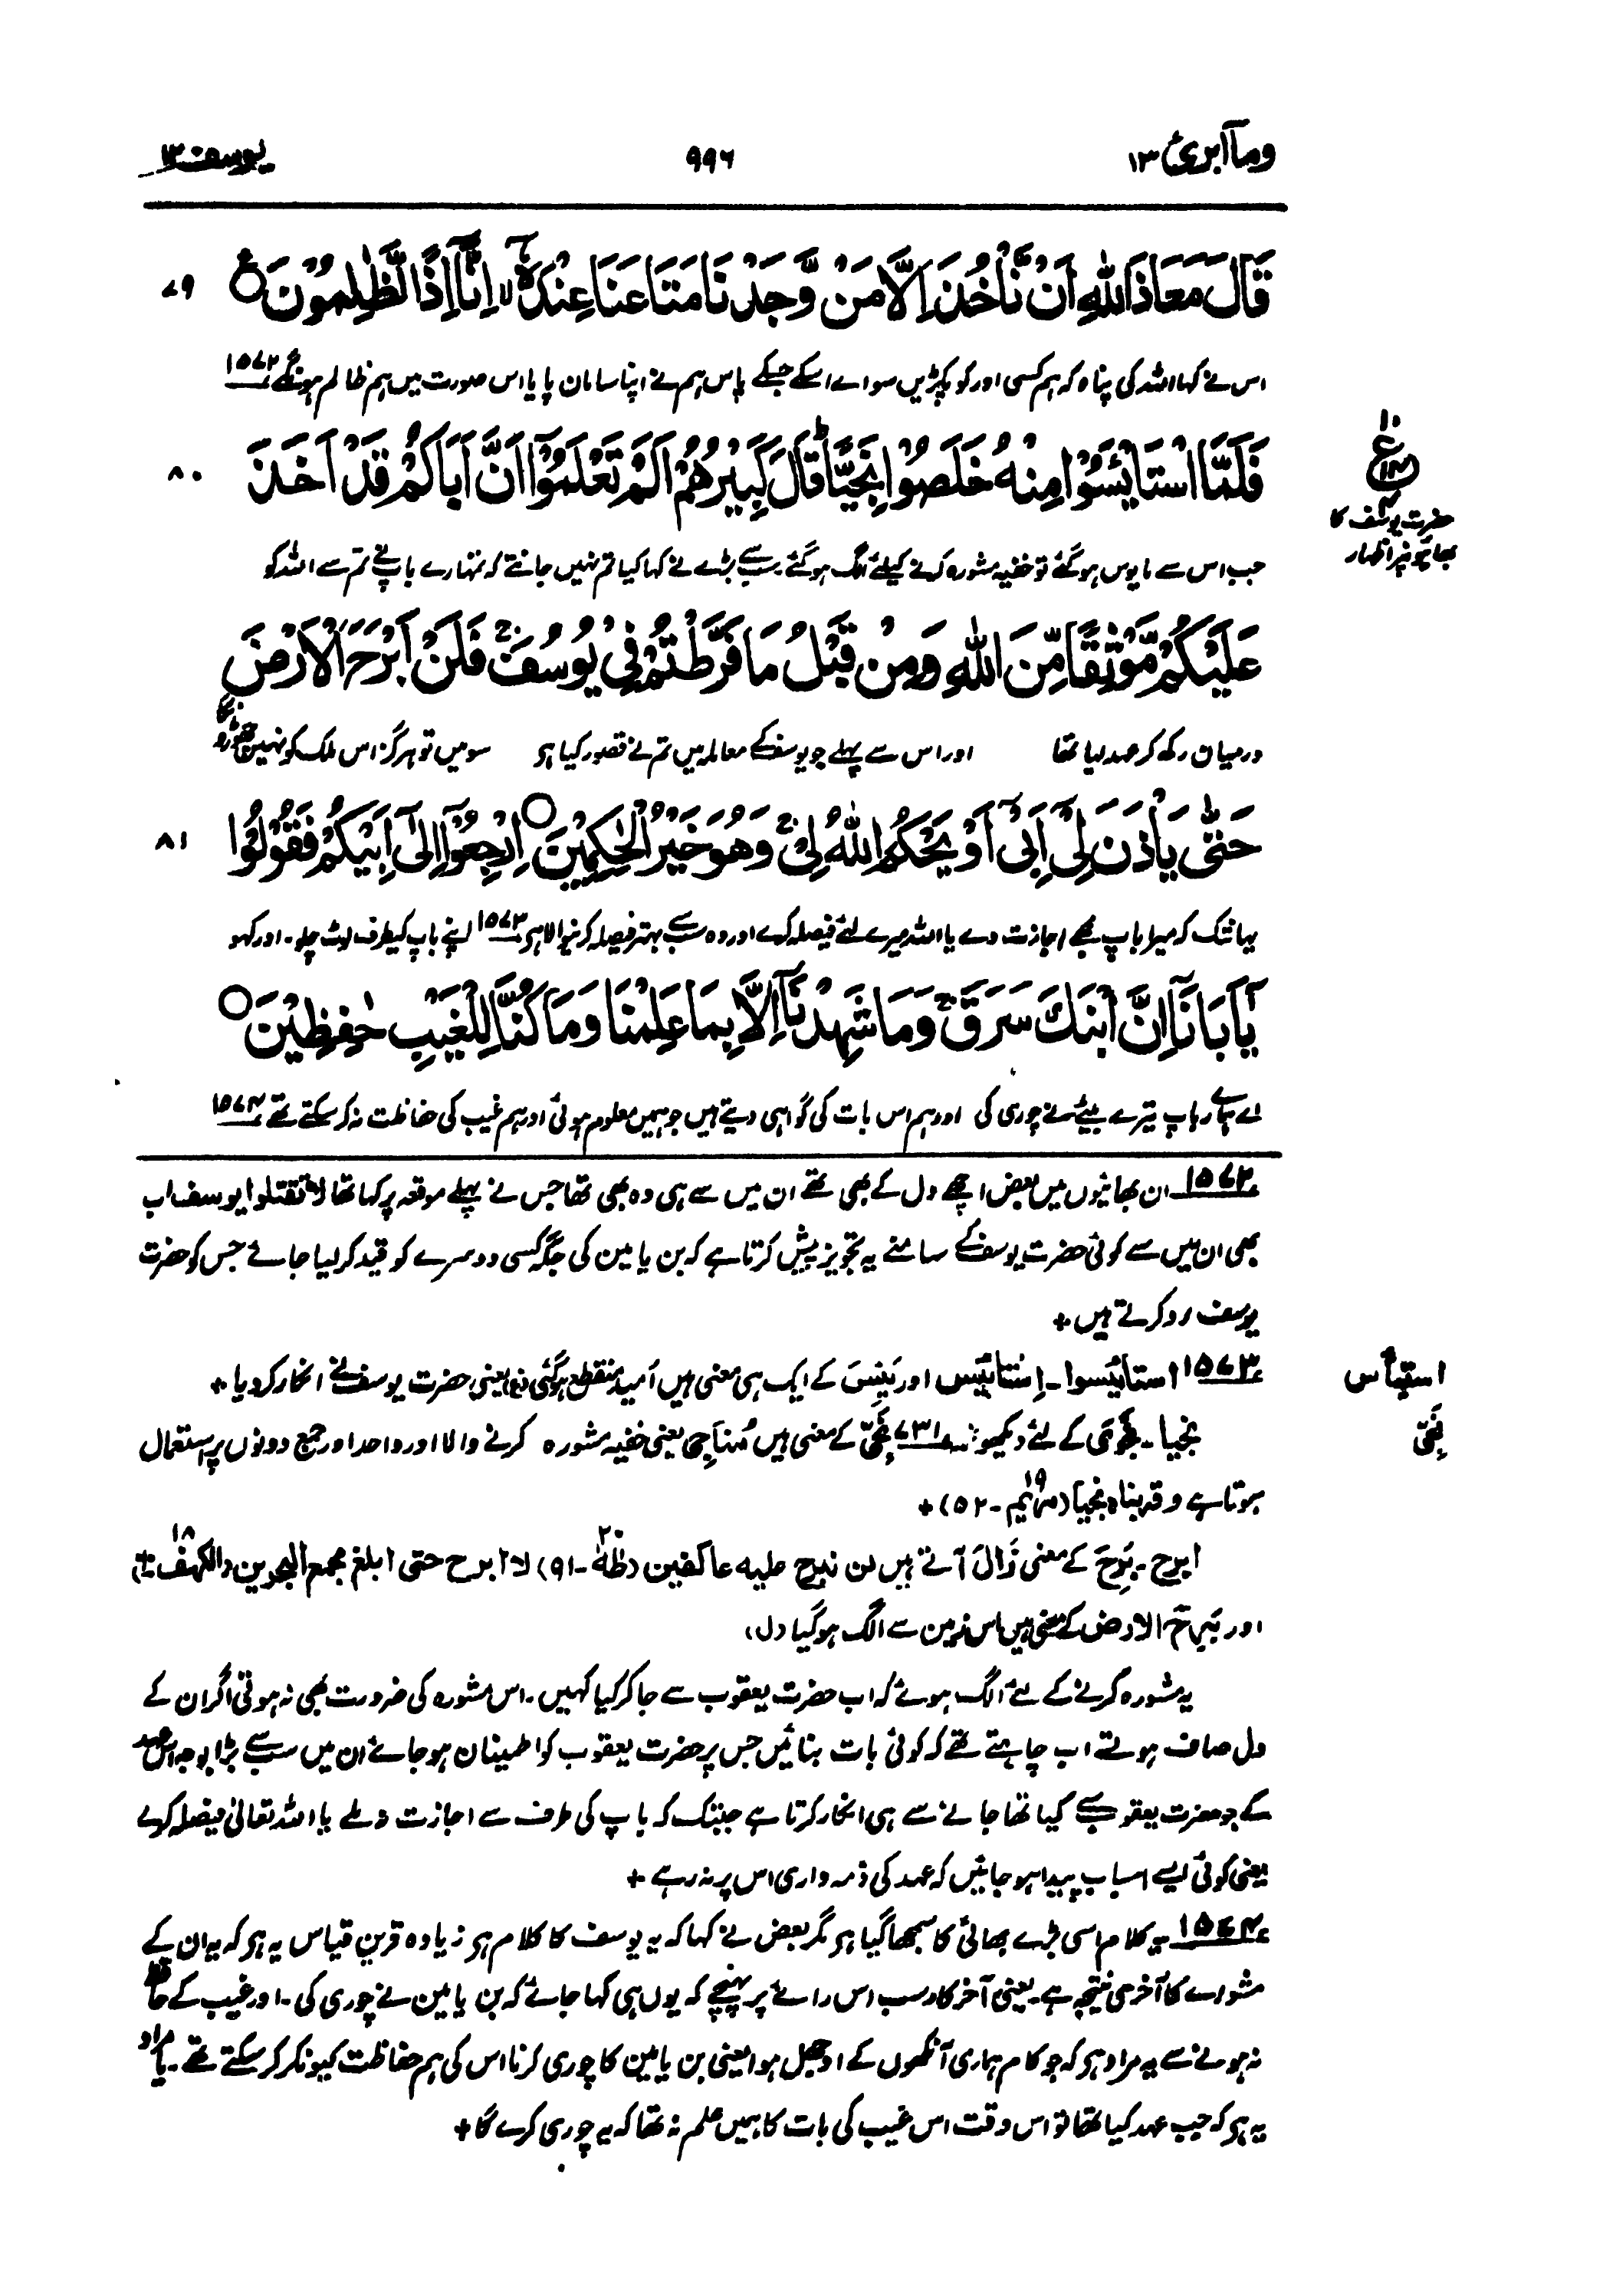 وماآبرئ ١٣
٩٩٦
یوسف ١٢
قَالَ مَعَاذَ اللّٰهِ اَنْ نَّاْخُذَ اِلَّا مَنْ وَّجَدْنَا مَتَاعَنَا عِنْدَهٗۤ ۙ اِنَّاۤ اِذًا لَّظٰلِمُوْنَ ۠
٧٩
اس نے کہا اللہ کی پناہ کہ ہم کسی اور کو پکڑیں سواے اسکے جسکے پاس ہم نے اپنا سامان پایا اس صورت میں ہم ظالم ہونگے ١٥٧٢
فَلَمَّا اسْتَایْـَٔسُوْا مِنْهُ خَلَصُوْا نَجِیًّا ؕ قَالَ كَبِیْرُهُمْ اَلَمْ تَعْلَمُوْۤا اَنَّ اَبَاكُمْ قَدْ اَخَذَ
٨٠
حضرت یوسف کا
بھائیونپر اظہار
جب اس سے مایوس ہوگئے تو خفیہ مشورہ کرنے کیلئے الگ ہوگئے۔ سب سے بڑے نے کہا کیا تم نہیں جانتے کہ تمہارے باپ نے تم سے اللہ کو
عَلَیْكُمْ مَّوْثِقًا مِّنَ اللّٰهِ وَ مِنْ قَبْلُ مَا فَرَّطْتُّمْ فِیْ یُوْسُفَ ۚ فَلَنْ اَبْرَحَ الْاَرْضَ
درمیان رکھ کر عہد لیا تھا اور اس سے پہلے جو یوسف کے معاملہ میں تم نے قصور کیا ہو سو میں تو ہرگز اس ملک کو نہیں چھوڑونگا
حَتّٰى یَاْذَنَ لِیْۤ اَبِیْۤ اَوْ یَحْكُمَ اللّٰهُ لِیْ ۚ وَ هُوَ خَیْرُ الْحٰكِمِیْنَ ۝ اِرْجِعُوْۤا اِلٰۤى اَبِیْكُمْ فَقُوْلُوْا
٨١
یہانتک کہ میرا باپ مجھے اجازت دے یا اللہ میرے لئے فیصلہ کرے اور وہ سب سے بہتر فیصلہ کرنیوالا ہو ١٥٧٣ اپنے باپ کیطرف لوٹ چلو۔ اور کہو
یٰۤاَبَانَاۤ اِنَّ ابْنَكَ سَرَقَ ۚ وَ مَا شَهِدْنَاۤ اِلَّا بِمَا عَلِمْنَا وَ مَا كُنَّا لِلْغَیْبِ حٰفِظِیْنَ ۝
اے ہمارے باپ تیرے بیٹے نے چوری کی اور ہم اس بات کی گواہی دیتے ہیں جو ہمیں معلوم ہوئی اور ہم غیب کی حفاظت نہ کرسکتے تھے ١٥٧٤
١٥٧٢۔ ان بھائیوں میں بعض اچھے دل کے بھی تھے ان میں سے ہی وہ بھی تھا جس نے پہلے موقعہ پر کہا تھا لا تقتلوا یوسف اب
بھی ان میں سے کوئی حضرت یوسف کے سامنے یہ تجویز پیش کرتا ہے کہ بن یامین کی جگہ کسی دوسرے کو قید کر لیا جائے جس کو حضرت
یوسف رد کرتے ہیں +
استیأس
١٥٧٣ استایئسوا۔ اِسْتَایْئَسَ اور یَئِسَ کے ایک ہی معنی ہیں امید منقطع ہوگئی یعنی حضرت یوسف نے انکار کردیا +
نَجِیّ
نجیا۔ نَجْوَی کے لئے دیکھو ٧٣١ نَجِیّ کے معنی ہیں مُنَاجِی یعنی خفیہ مشورہ کرنے والا اور واحد اور جمع دونوں پر استعمال
ہوتا ہے وقربناہ نجیا (مریم ١٩۔ ٥٢) +
ابرح۔ بَرِحَ کے معنی زَالَ آتے ہیں لن نبرح علیہ عاکفین (طٰہٰ ٢٠۔ ٩١) لا ابرح حتی ابلغ مجمع البحرین (الکہف ١٨۔
اور بَرِحَ الارض کے معنی ہیں اس زمین سے الگ ہوگیا (ل)
یہ مشورہ کرنے کے لئے الگ ہوئے کہ اب حضرت یعقوب سے جا کر کیا کہیں۔ اس مشورہ کی ضرورت بھی نہ ہوتی اگر ان کے
دل صاف ہوتے اب چاہتے تھے کہ کوئی بات بنائیں جس پر حضرت یعقوب کو اطمینان ہو جائے ان میں سب سے بڑا بوجہ اس عہد
کے جو حضرت یعقوب سے کیا تھا جانے سے ہی انکار کرتا ہے جبتک کہ باپ کی طرف سے اجازت نہ ملے یا اللہ تعالیٰ فیصلہ کرے
یعنی کوئی ایسے اسباب پیدا ہو جائیں کہ عہد کی ذمہ داری اس پر نہ رہے +
١٥٧٤۔ یہ کلام اسی بڑے بھائی کا سمجھا گیا ہو مگر بعض نے کہا کہ یہ یوسف کا کلام ہو زیادہ قرین قیاس یہ ہو کہ یہ ان کے
مشورے کا آخری نتیجہ ہے۔ یعنی آخر کار سب اس رائے پر پہنچے کہ یوں ہی کہا جائے کہ بن یامین نے چوری کی۔ اور غیب کے حافظ
نہ ہونے سے یہ مراد ہو کہ جو کام ہماری آنکھوں کے اوجھل ہوا یعنی بن یامین کا چوری کرنا اس کی ہم حفاظت کیونکر کر سکتے تھے۔ یا مراد
یہ ہو کہ جب عہد کیا تھا تو اس وقت اس غیب کی بات کا ہمیں علم نہ تھا کہ یہ چوری کرے گا +